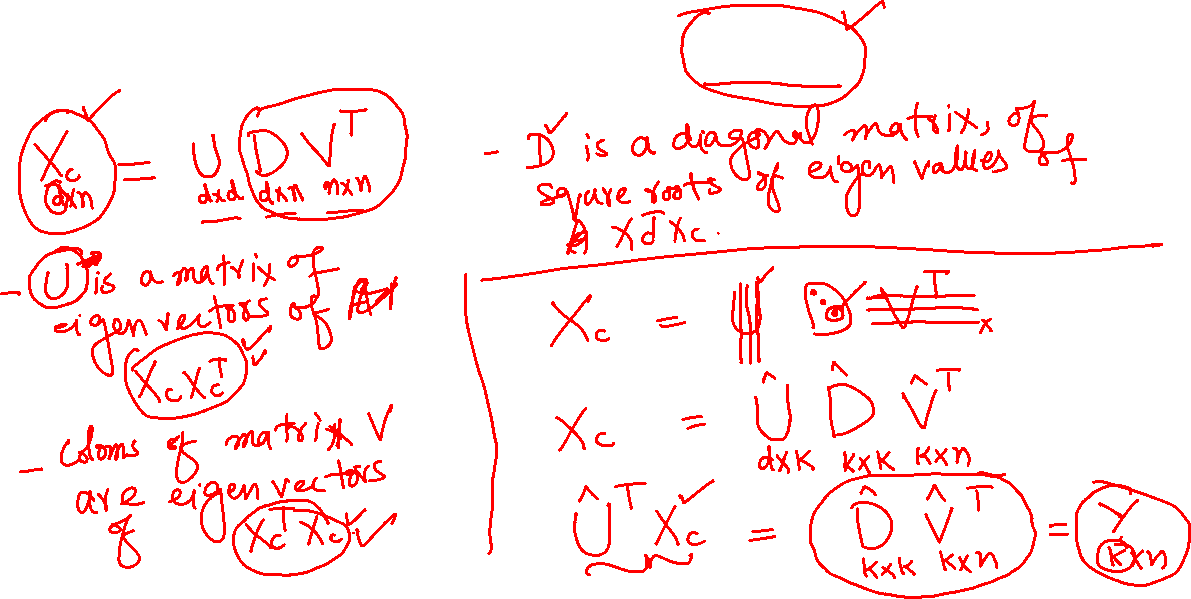 X_c = U D V^T
dxn dxd dxn nxn
- U is a matrix of
eigen vectors of
X_c X_c^T
- Coloms of matrix V
are eigen vectors
of X_c^T X_c
- D is a diagonal matrix, of
square roots of eigen values of
X_c^T X_c.
X_c = U D V^T
X_c = Û D̂ V̂^T
dxk kxk kxn
Û^T X_c = D̂ V̂^T = Y
kxk kxn kxn